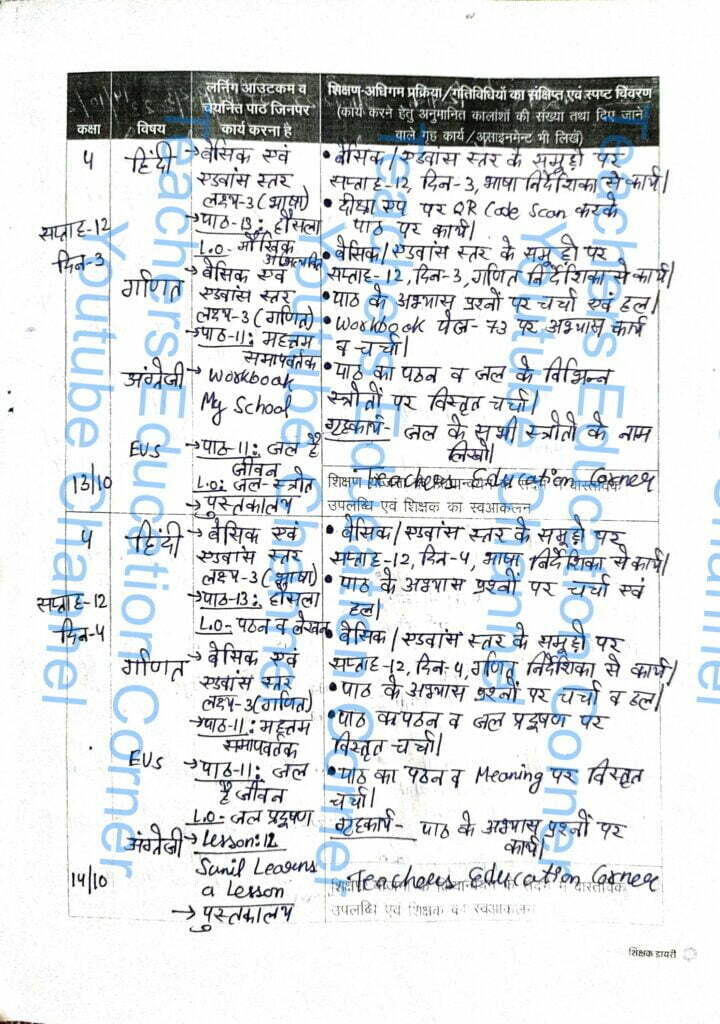 कक्षा
विषय
लर्निंग आउटकम व
चयनित पाठ जिनपर
कार्य करना है
शिक्षण-अधिगम प्रक्रिया/गतिविधियों का संक्षिप्त एवं स्पष्ट विवरण
(कार्य करने हेतु अनुमानित कालांशों की संख्या तथा दिए जाने
वाले गृह कार्य/असाइनमेंट भी लिखें)
4
सप्ताह-12
दिन-3
हिंदी
→बेसिक एवं
एडवांस स्तर
लक्ष्य-3(भाषा)
→पाठ-13: हौसला
L.O- मौखिक
• बेसिक/एडवांस स्तर के समूहों पर
सप्ताह-12, दिन-3, भाषा निर्देशिका से कार्य।
• दीक्षा एप पर QR Code Scan करके
पाठ पर कार्य।
गणित
→बेसिक एवं
एडवांस स्तर
लक्ष्य-3(गणित)
→पाठ-11: महत्तम
समापवर्तक
• बेसिक/एडवांस स्तर के समूहों पर
सप्ताह-12, दिन-3, गणित निर्देशिका से कार्य।
• पाठ के अभ्यास प्रश्नों पर चर्चा एवं हल।
अंग्रेजी
→ Workbook
My School
• Workbook पेज-73 पर अभ्यास कार्य
व चर्चा।
EVS
→पाठ-11: जल है
जीवन
L.O: जल-स्त्रोत
→पुस्तकालय
• पाठ का पठन व जल के विभिन्न
स्त्रोतों पर विस्तृत चर्चा।
गृहकार्य- जल के सभी स्त्रोतो के नाम
लिखो।
13/10
Teachers Education Corner
उपलब्धि एवं शिक्षक का स्वआकलन
4
सप्ताह-12
दिन-4
हिंदी
→बेसिक एवं
एडवांस स्तर
लक्ष्य-3(भाषा)
→पाठ-13: हौसला
L.O- पठन व लेखन
• बेसिक/एडवांस स्तर के समूहों पर
सप्ताह-12, दिन-4, भाषा निर्देशिका से कार्य।
• पाठ के अभ्यास प्रश्नों पर चर्चा एवं
हल।
गणित
→बेसिक एवं
एडवांस स्तर
लक्ष्य-3(गणित)
→पाठ-11: महत्तम
समापवर्तक
• बेसिक/एडवांस स्तर के समूहों पर
सप्ताह-12, दिन-4, गणित निर्देशिका से कार्य।
• पाठ के अभ्यास प्रश्नों पर चर्चा व हल।
EVS
→पाठ-11: जल
है जीवन
L.O- जल प्रदूषण
• पाठ का पठन व जल प्रदूषण पर
विस्तृत चर्चा।
अंग्रेजी
→ Lesson:12
Sunil Learns
a Lesson
→ पुस्तकालय
• पाठ का पठन व Meaning पर विस्तृत
चर्चा।
गृहकार्य- पाठ के अभ्यास प्रश्नों पर
कार्य।
14/10
Teachers Education Corner
उपलब्धि एवं शिक्षक का स्वआकलन
शिक्षक डायरी
Teachers Education Corner
Youtube Channel
Teachers Education Corner
Youtube Channel